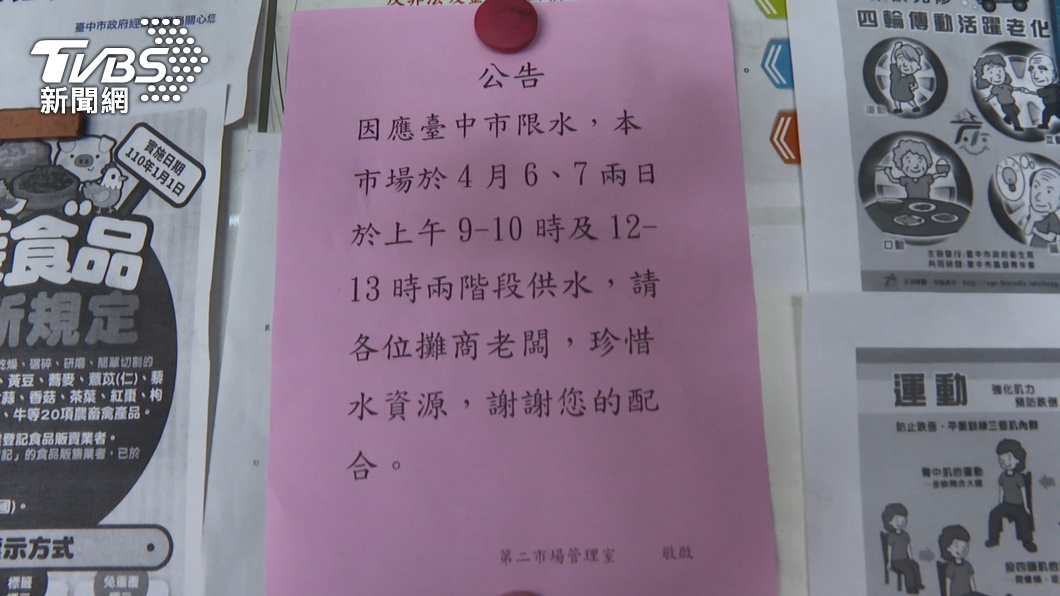 臺中市政府經
關心您
TVBS
新聞網
公告
因應臺中市限水，本
市場於 4 月 6、7 兩日
於上午 9-10 時及 12-
13 時兩階段供水，請
各位攤商老闆，珍惜
水資源，謝謝您的配
合。
第二市場管理室 敬啟
實施日期
110年1月1日
食品
新規定
乾燥、碾碎、研磨、簡單切割的
、黃豆、蕎麥、薏苡(仁)、藜
蒜、香菇、茶葉、紅棗、枸
、牛等20項農畜禽產品。
登記食品販賣業者。
記」的食品販售業者，已於
示方式
標籤
免重覆
四輪傳動活躍老化
口動
主辦發行:臺中市政府衛生局
運動
強化肌力
預防跌倒
防止跌倒、平衡訓練三組肌肉群